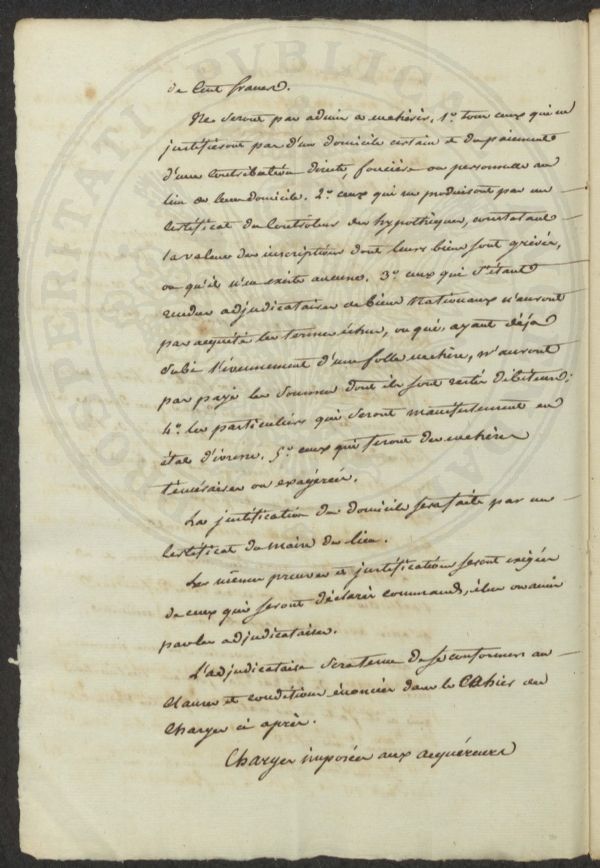 de Cent francs.
Ne seront pas admis à enchérir, 1º tous ceux qui ne
justifieront pas d'un domicile certain et du paiement
d'une Contribution directe, foncière ou personnelle au
lieu de leur domicile. 2º ceux qui ne produiront pas un
Certificat du Controleur des hypothèques, constatant
la valeur des inscriptions dont leurs biens sont grévés,
ou qu'il n'en existe aucune. 3º ceux qui s'étant
rendus adjudicataires de biens Nationaux n'auront
pas acquité les termes échus, ou qui, ayant déja
subi l'évenement d'une folle enchère, n'auront
pas payé les sommes dont ils sont restés débiteurs;
4º les particuliers qui seront manifestement en
état d'ivresse. 5º ceux qui feront des enchères
téméraires ou exagérées.
La justification du domicile sera faite par un
Certificat du Maire du lieu.
Les mêmes preuves et justifications seront exigées
de ceux qui seront déclarés commands, élus ou amis
par les adjudicataires.
L'adjudicataire sera tenu de se conformer aux
Clauses et conditions énoncées dans le Cahier des
Charges ci après.
Charges imposées aux acquéreurs
POSTERITATI PUBLICA